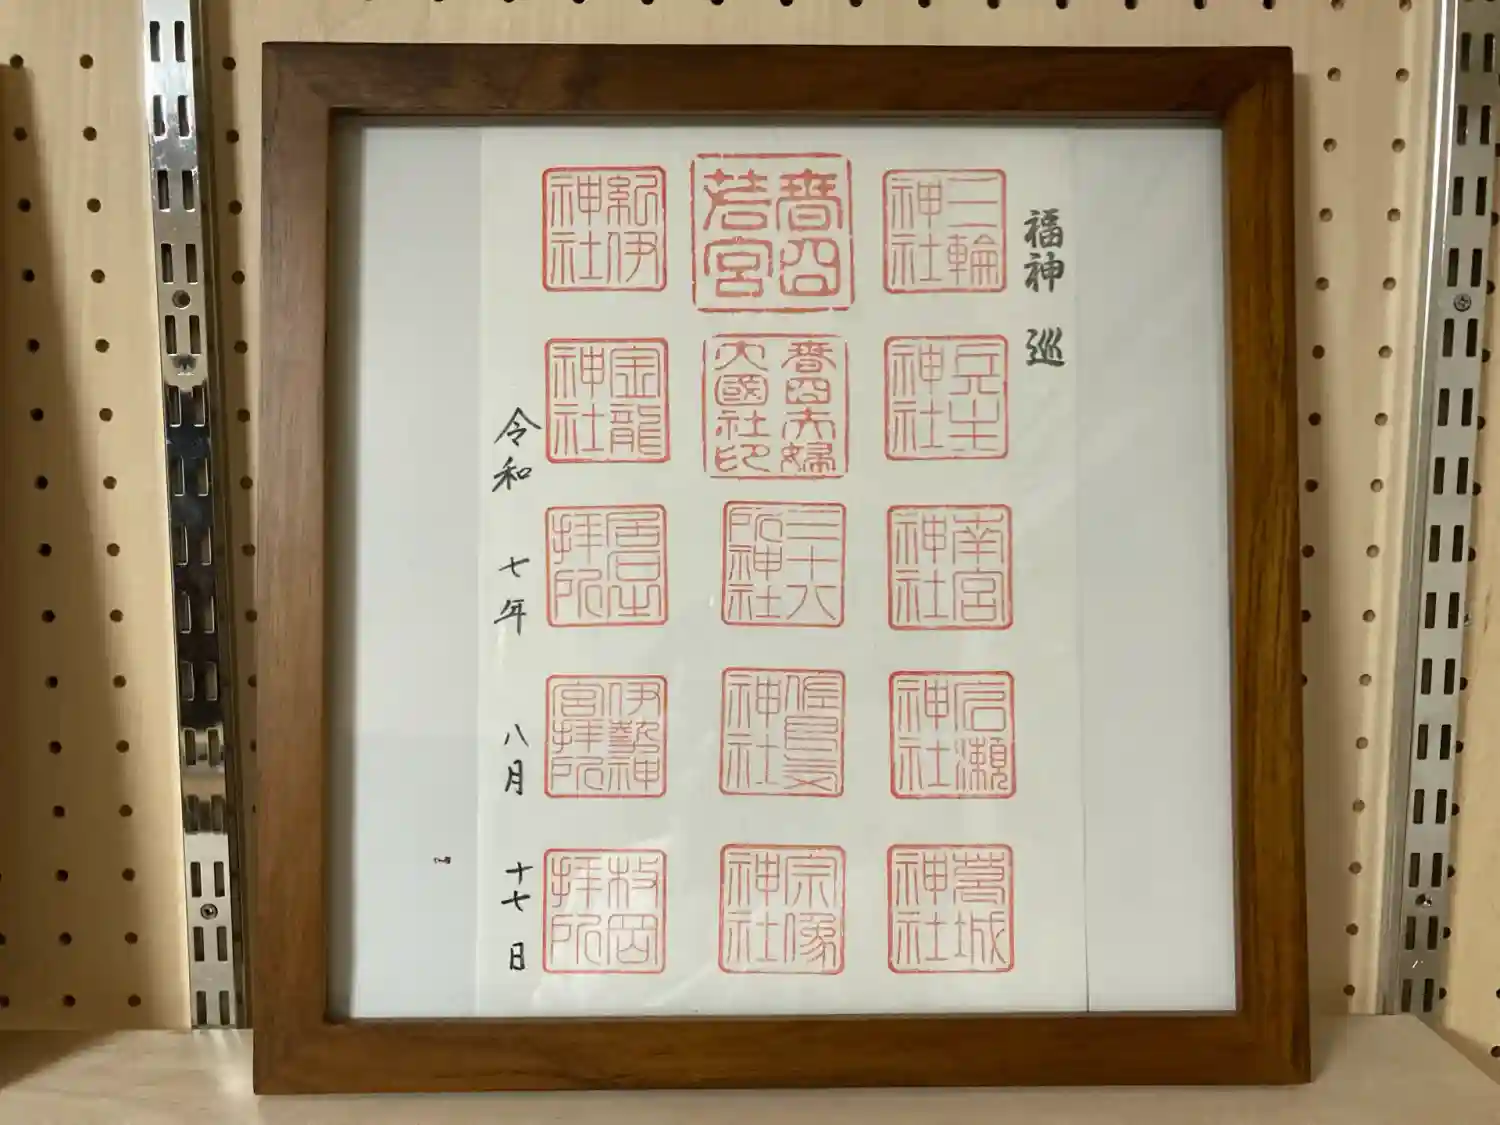 福神 巡
三輪
神社
兵主
神社
南宮
神社
広瀬
神社
葛城
神社
春日
若宮
春日夫婦
大國社印
三十八
所神社
佐良気
神社
宗像
神社
紀伊
神社
金龍
神社
拝所
伊勢神
宮拝所
枚岡
拝所
令和 七年 八月 十七日